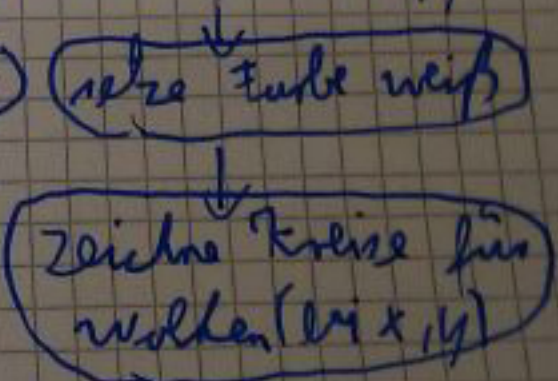 setze Farbe weiß
zeichne Kreise für
Wolken( x,y)